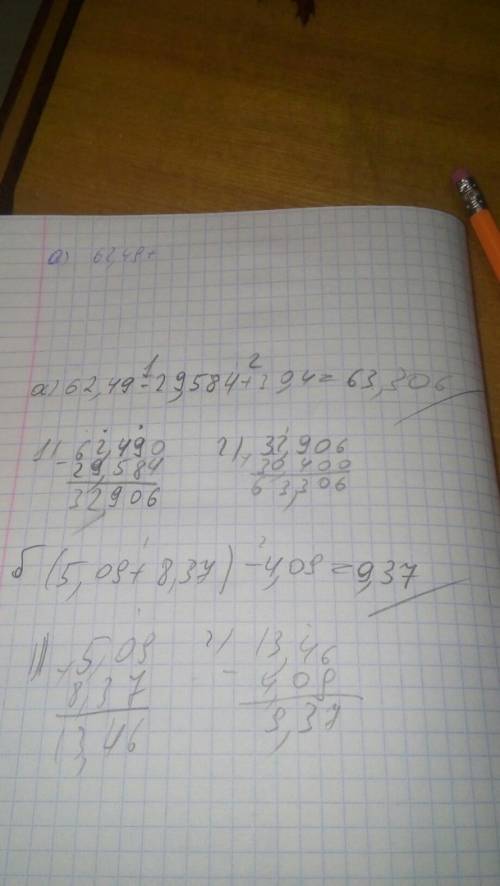 а) 62,49+
1 2
а) 62,49-29,584+30,4=63,306
1) 62,490 2) 32,906
- 29,584 + 30,400
32906 63,306
1 2
б (5,09+8,37)-4,09=9,37
1) 5,09 2) 13,46
+ 8,37 - 4,09
13,46 9,37